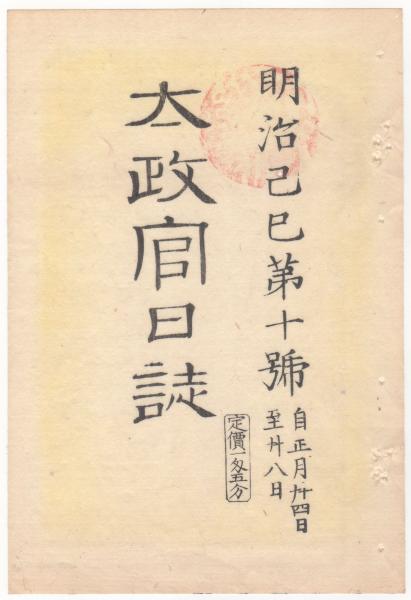 明治己巳第十號
自正月廿四日
至廿八日
定價一匁五分
太政官日誌